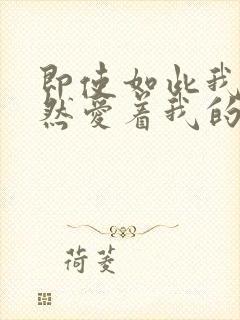 即使如此我
然爱着我的
荷菱